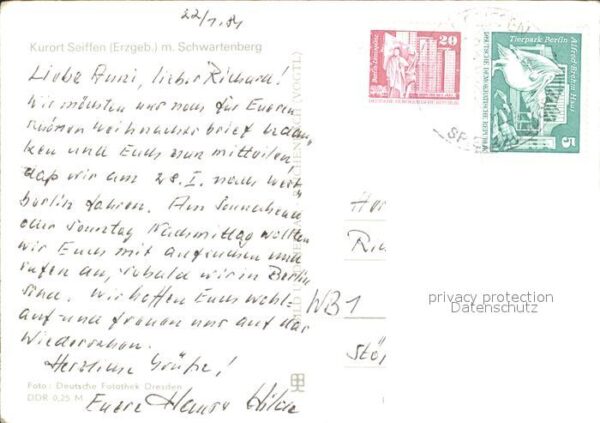 22/1.84
Kurort Seiffen (Erzgeb.) m. Schwartenberg
Liebe Anni, lieber Richard!
Wir möchten uns noch für Eueren
Weihnachtsbrief bedan-
ken und Euch nun mitteilen,
daß wir am 28. I. nach West-
berlin fahren. Am Sonnabend
oder Sonntag Nachmittag wollten
wir Euch mit aufsuchen und
rufen an, sobald wir in Berlin
sind. Wir hoffen Euch wohl-
auf und freuen uns auf das
Wiedersehen.
Herzliche Grüße!
Euere Hilde
Foto: Deutsche Fotothek Dresden
DDR 0,25 M
20
DEUTSCHE DEMOKRATISCHE REPUBLIK
Tierpark Berlin
Alfred Brehm Haus
5
DEUTSCHE DEMOKRATISCHE REPUBLIK
WB1
privacy protection
Datenschutz